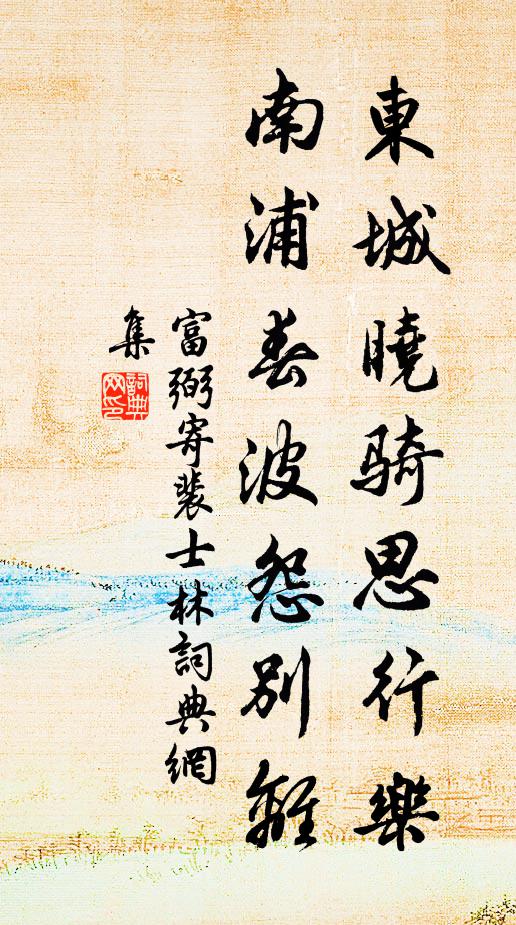 東城曉騎思行樂
南浦春波怨別離
富弼寄裴士林詞典網
集
詞典
网印